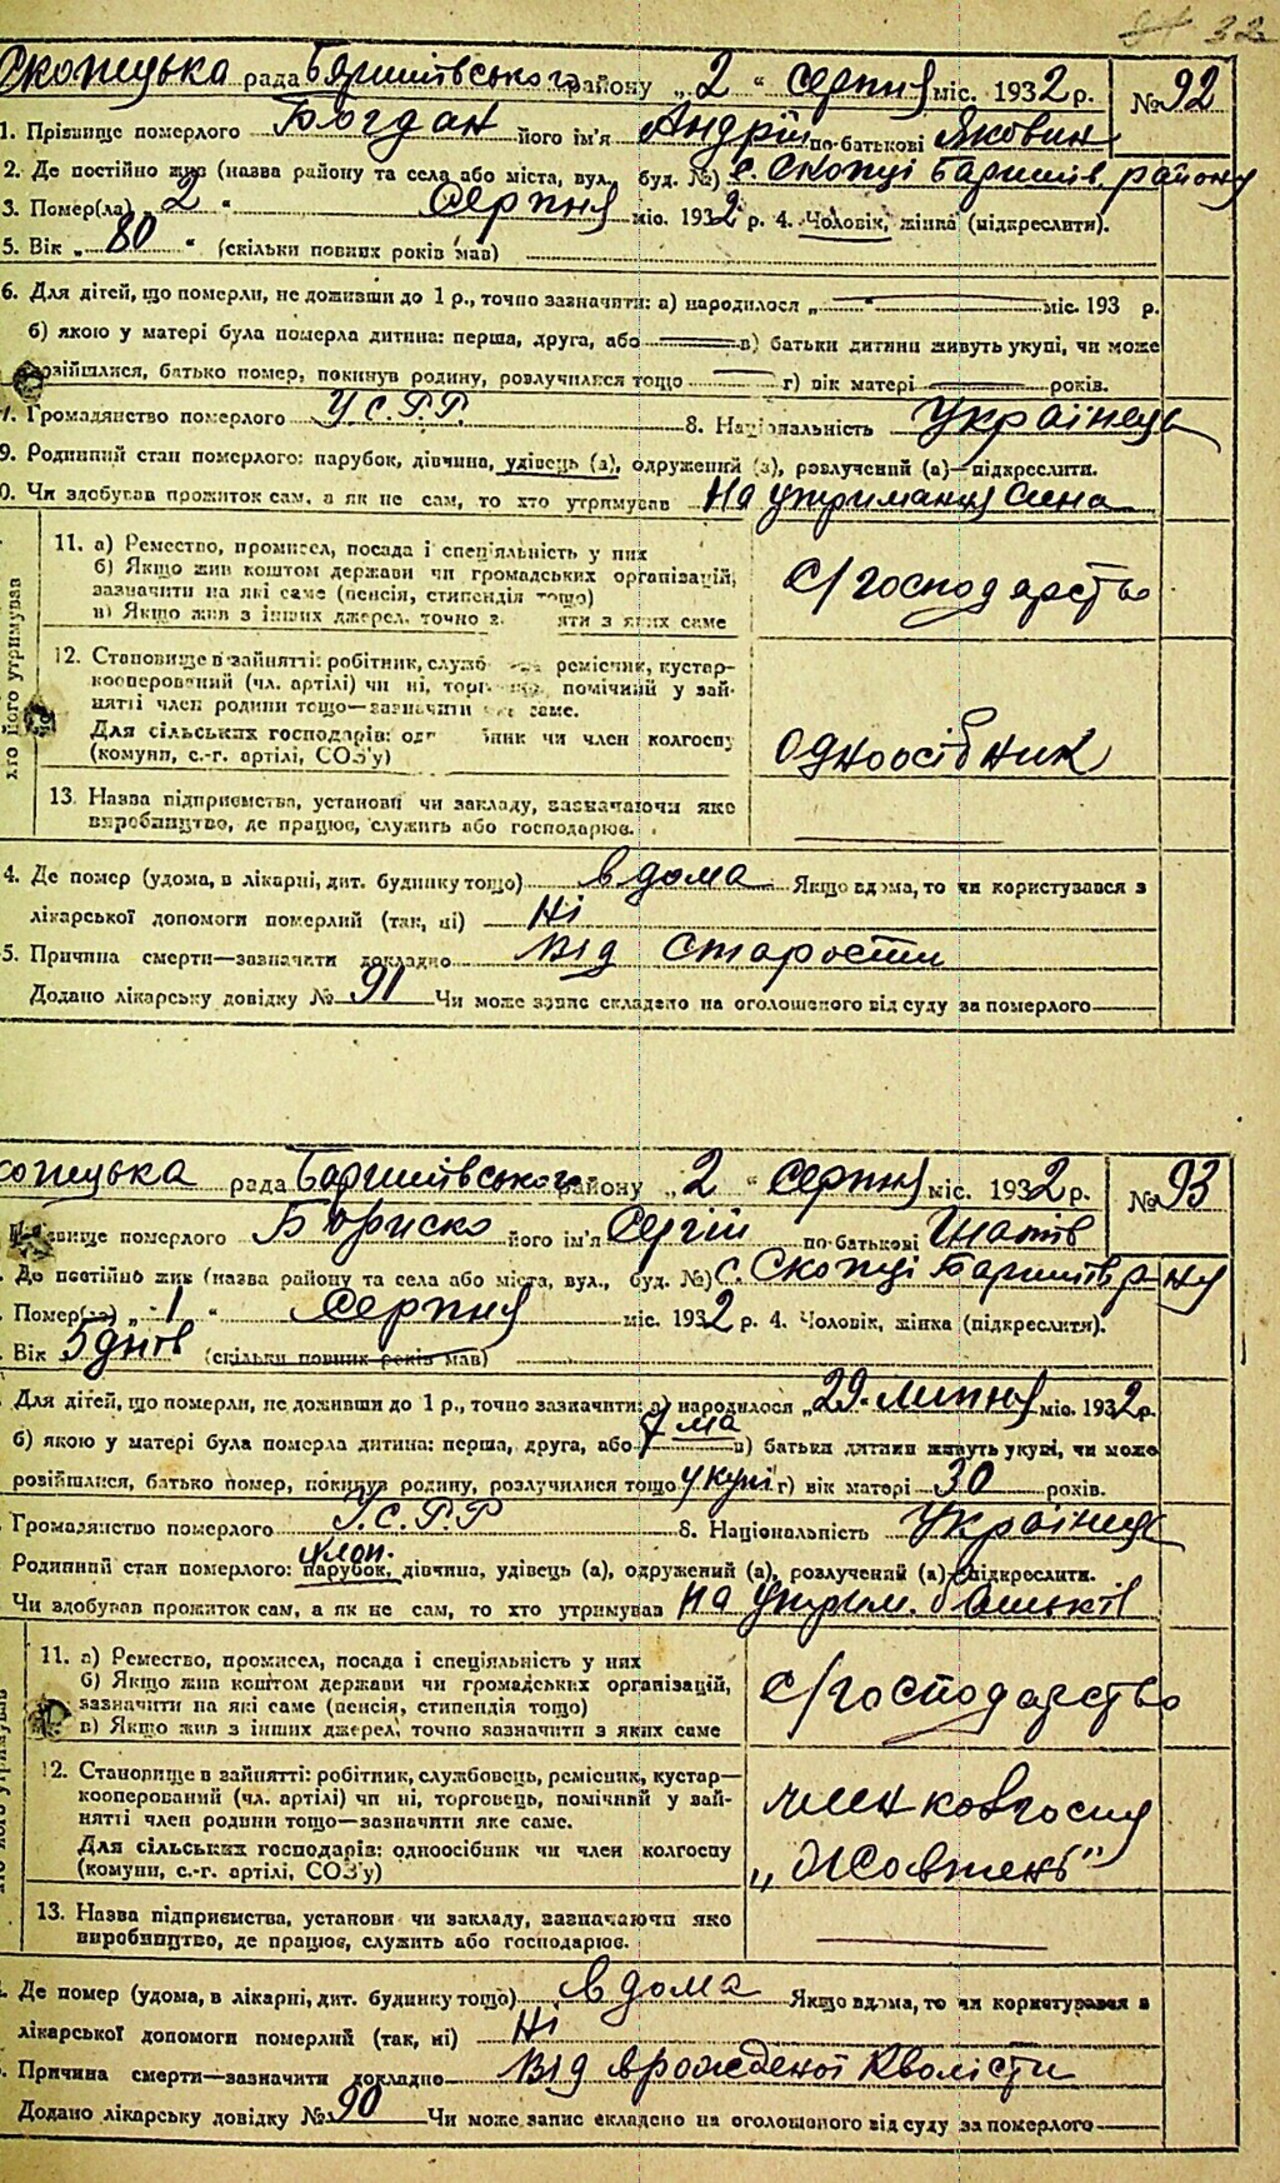 32
Скопецька рада Баришівського району „2" серпня міс. 1932 р. № 92
1. Прізвище померлого Богдан його ім'я Андрій по-батькові Яковин
2. Де постійно жив (назва району та села або міста, вул., буд. №) с. Скопці Баришів. району
3. Помер(ла) „2" Серпня міс. 1932 р. 4. Чоловік, жінка (підкреслити).
5. Вік „80" (скільки повних років мав)
6. Для дітей, що померли, не доживши до 1 р., точно зазначити: а) народилося „ " міс. 193 р.
б) якою у матері була померла дитина: перша, друга, або в) батьки дитини живуть укупі, чи може
розійшлися, батько помер, покинув родину, розлучилися тощо г) вік матері років.
7. Громадянство померлого У.С.Р.Р. 8. Національність Українець
9. Родинний стан померлого: парубок, дівчина, удівець (а), одружений (а), розлучений (а)—підкреслити.
0. Чи здобував прожиток сам, а як не сам, то хто утримував На утриманні Сина
хто його утримував
11. а) Ремество, промисел, посада і спеціяльність у них
б) Якщо жив коштом держави чи громадських організацій, зазначити на які саме (пенсія, стипендія тощо)
в) Якщо жив з інших джерел, точно з яти з яких саме
с/господарство
12. Становище в зайнятті: робітник, служб ремісник, кустар-
кооперований (чл. артілі) чи ні, торг помічний у зай-
нятті член родини тощо—зазначити яке саме.
Для сільських господарів: од ник чи член колгоспу
(комуни, с.-г. артілі, СОЗ'у)
одноосібник
13. Назва підприємства, установи чи закладу, зазначаючи яке
виробництво, де працює, служить або господарює.
4. Де помер (удома, в лікарні, дит. будинку тощо) вдома Якщо вдома, то чи користувався з
лікарської допомоги померлий (так, ні) Ні
5. Причина смерти—зазначити докладно від старости
Додано лікарську довідку № 91 Чи може запис складено на оголошеного від суду за померлого
копецька рада Баришівського району „2" Серпня міс. 1932 р. № 93
Прізвище померлого Бориско його ім'я Сергій по-батькові
Де постійно жив (назва району та села або міста, вул., буд. №) с. Скопці Баришів р-ну
Помер(ла) „1" Серпня міс. 1932 р. 4. Чоловік, жінка (підкреслити).
Вік 5 днів (скільки повних років мав)
Для дітей, що померли, не доживши до 1 р., точно зазначити: а) народилося „29" липня міс. 1932 р.
б) якою у матері була померла дитина: перша, друга, або 7 ма в) батьки дитини живуть укупі, чи може
розійшлися, батько помер, покинув родину, розлучилися тощо укупі г) вік матері 30 років.
Громадянство померлого У.С.Р.Р 8. Національність Українець
хлоп.
Родинний стан померлого: парубок, дівчина, удівець (а), одружений (а), розлучений (а)—підкреслити.
Чи здобував прожиток сам, а як не сам, то хто утримував На утрим. батьків
11. а) Ремество, промисел, посада і спеціяльність у них
б) Якщо жив коштом держави чи громадських організацій,
зазначити на які саме (пенсія, стипендія тощо)
в) Якщо жив з інших джерел, точно зазначити з яких саме
с/господарство
12. Становище в зайнятті: робітник, службовець, ремісник, кустар—
кооперований (чл. артілі) чи ні, торговець, помічний у зай-
нятті член родини тощо—зазначити яке саме.
Для сільських господарів: одноосібник чи член колгоспу
(комуни, с.-г. артілі, СОЗ'у)
член ковгоспу
„Жовтень"
13. Назва підприємства, установи чи закладу, зазначаючи яко
виробництво, де працює, служить або господарює.
Де помер (удома, в лікарні, дит. будинку тощо) вдома Якщо вдома, то чи користувався з
лікарської допомоги померлий (так, ні) Ні
Причина смерти—зазначити докладно від врожденої кволісти
Додано лікарську довідку № 90 Чи може запис складено на оголошеного від суду за померлого